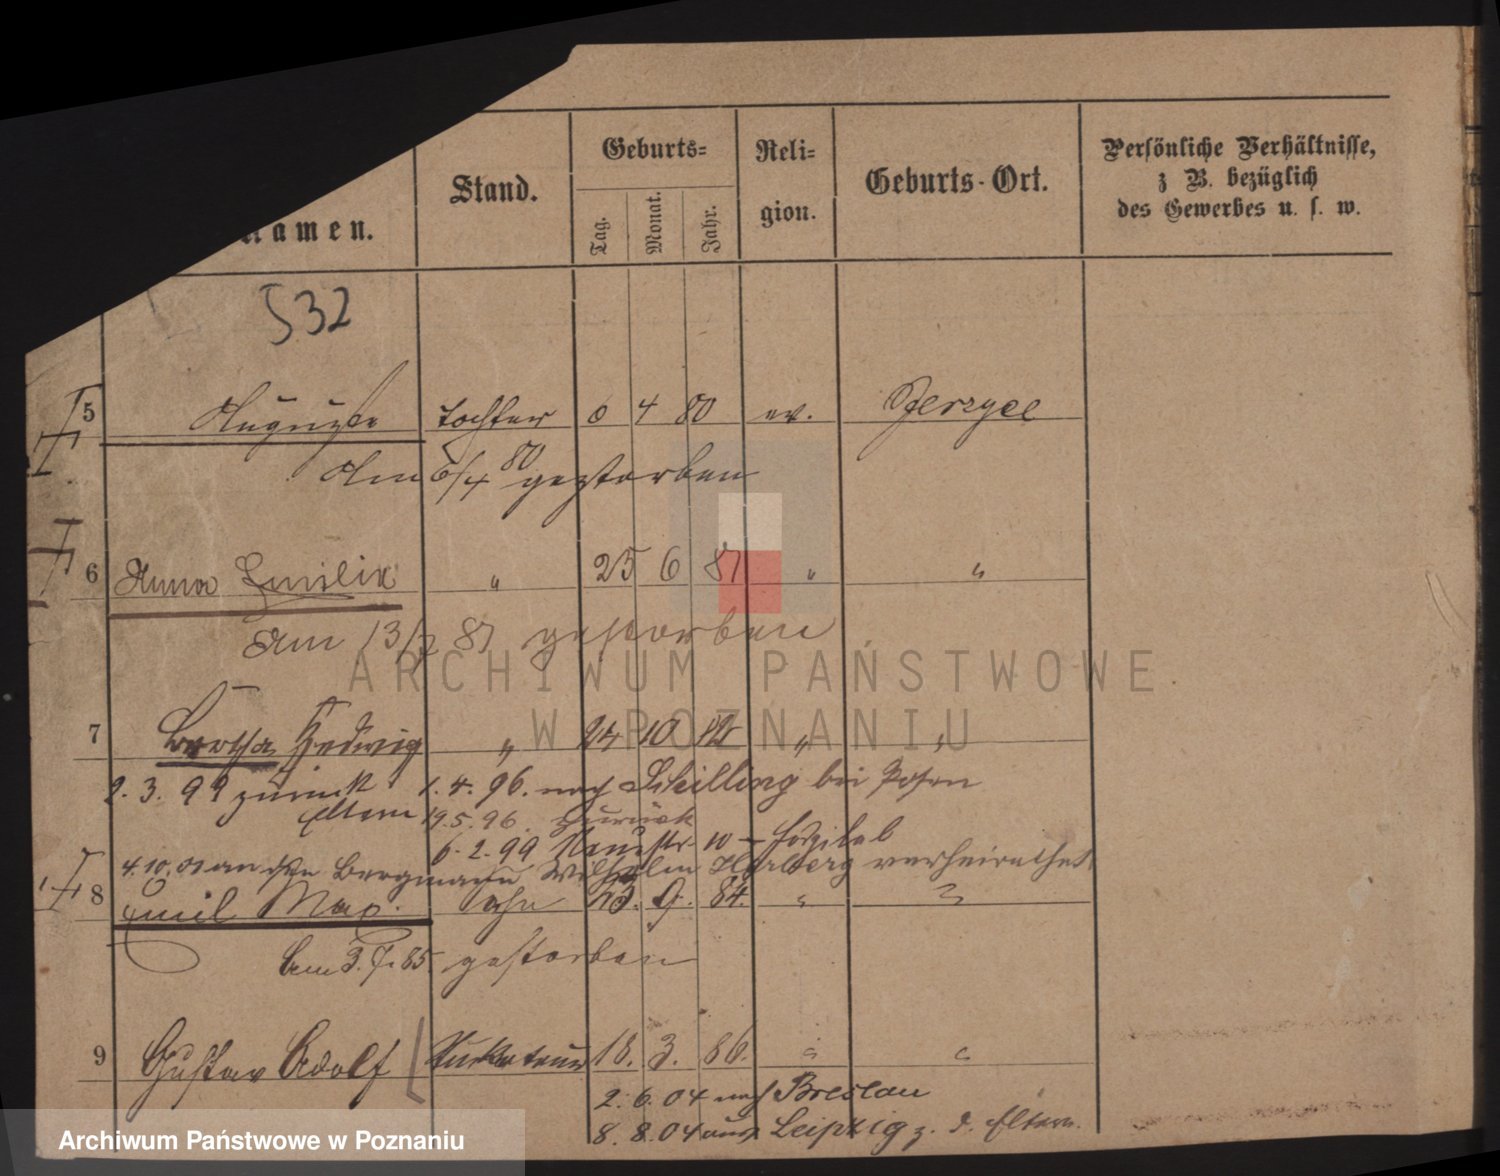 Stand.
Geburts=
Reli=
gion.
Geburts-Ort.
Persönliche Verhältnisse,
z B. bezüglich
des Gewerbes u. s. w.
Namen.
Tag.
Monat.
Jahr.
532
5 Auguste Tochter 6 4 80 ev. Jerzyce
Am 6/4 80 gestorben
6 Anna Emilie " 25 6 81 " "
Am 13/7 81 gestorben
7 Bertha Hedwig " 24 10 82 " "
2. 3. 99 zurück 1. 4. 96. nach Schilling bei Posen
Eltern 19.5.96. zurück
6. 2. 99 Neuestr. 10 - Hospital
4.10.01 an den Bergmann Wilhelm verheirathet
8 Emil Max. Sohn 23. 9. 84. " "
Am 3. 7. 85. gestorben
9 Gustav Adolf Stukateur 18. 3. 86. " "
2. 6. 04 nach Breslau
8. 8. 04 aus Leipzig z. d. Eltern.
ARCHIWUM PAŃSTWOWE
W POZNANIU
Archiwum Państwowe w Poznaniu